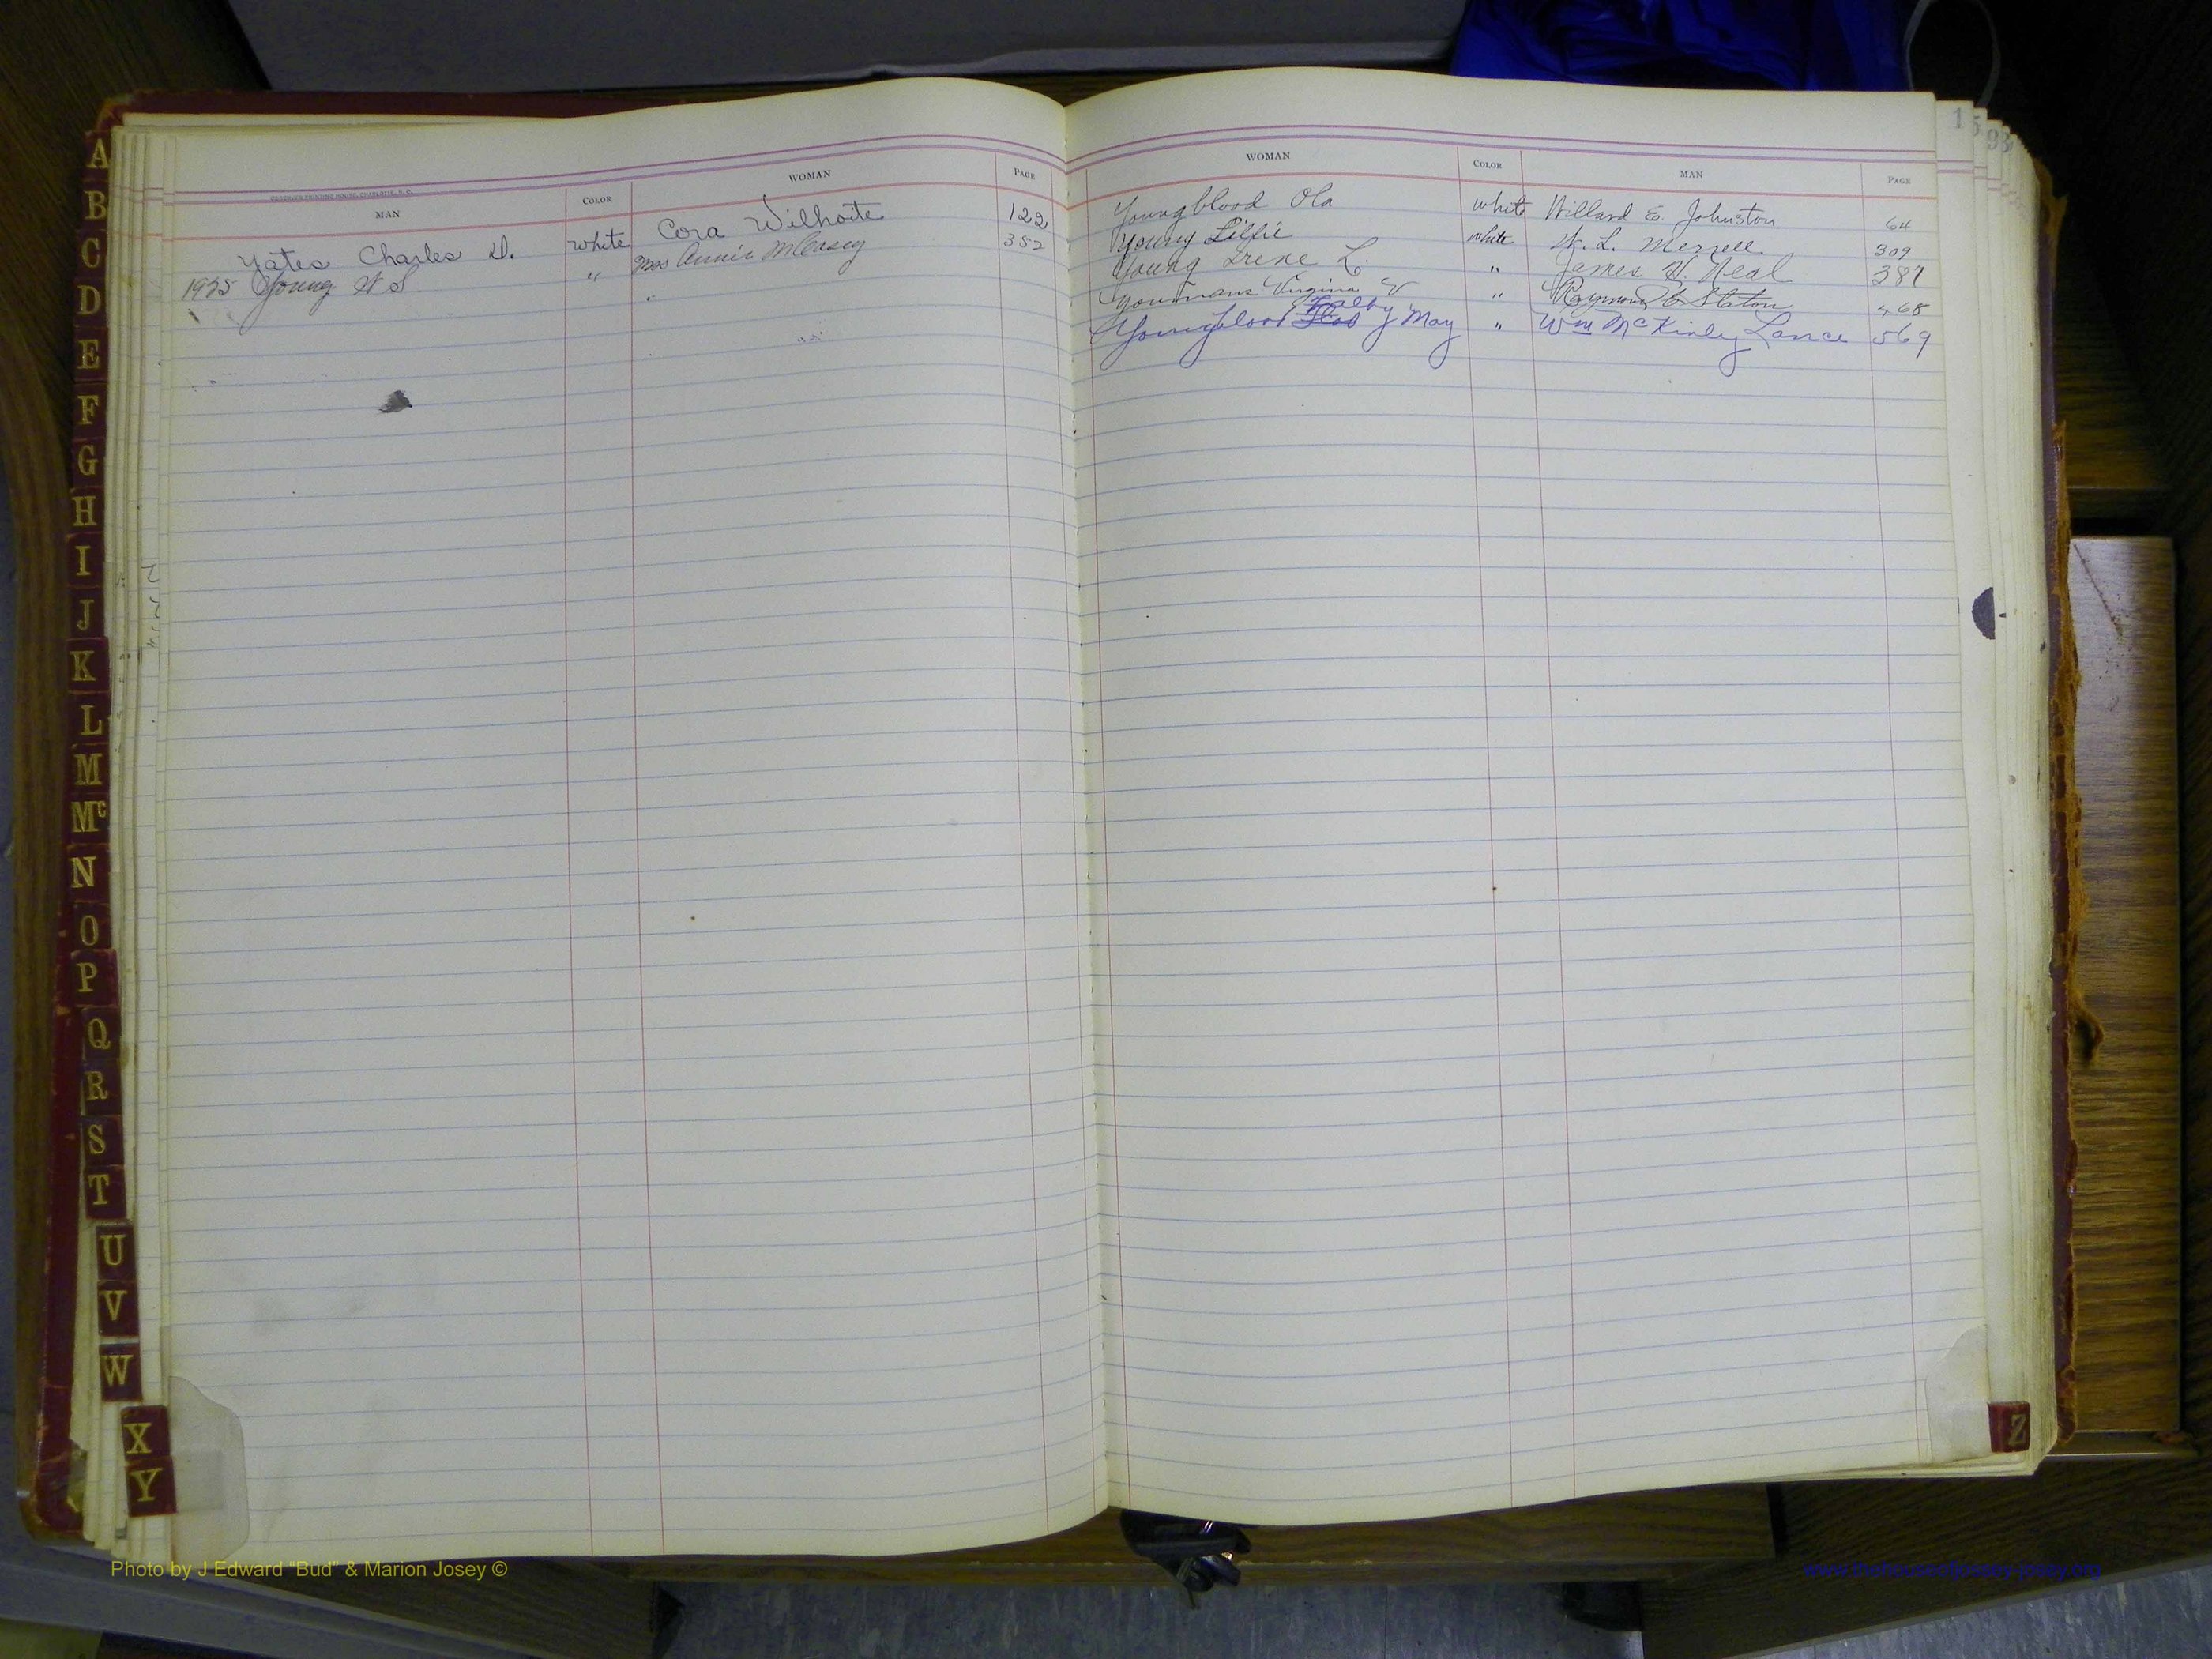 A
B
C
D
E
F
G
H
I
J
K
L
M
Mc
N
O
P
Q
R
S
T
U
V
W
X
Y
MAN COLOR WOMAN PAGE
Yates Charles D. white Cora Wilhoite 122
1935 Young W S " Mrs Annie McCasey 352
WOMAN COLOR MAN PAGE
Youngblood Ola white Willard E. Johnston 64
Young Lillie white W. L. Merrell 309
Young Irene L. " James H. Neal 387
Youmans Virginia V " Raymond E Staton 468
Youngblood May " Wm McKinley Lance 569
Z
Photo by J Edward "Bud" & Marion Josey ©
www.thehouseofjossey-josey.org